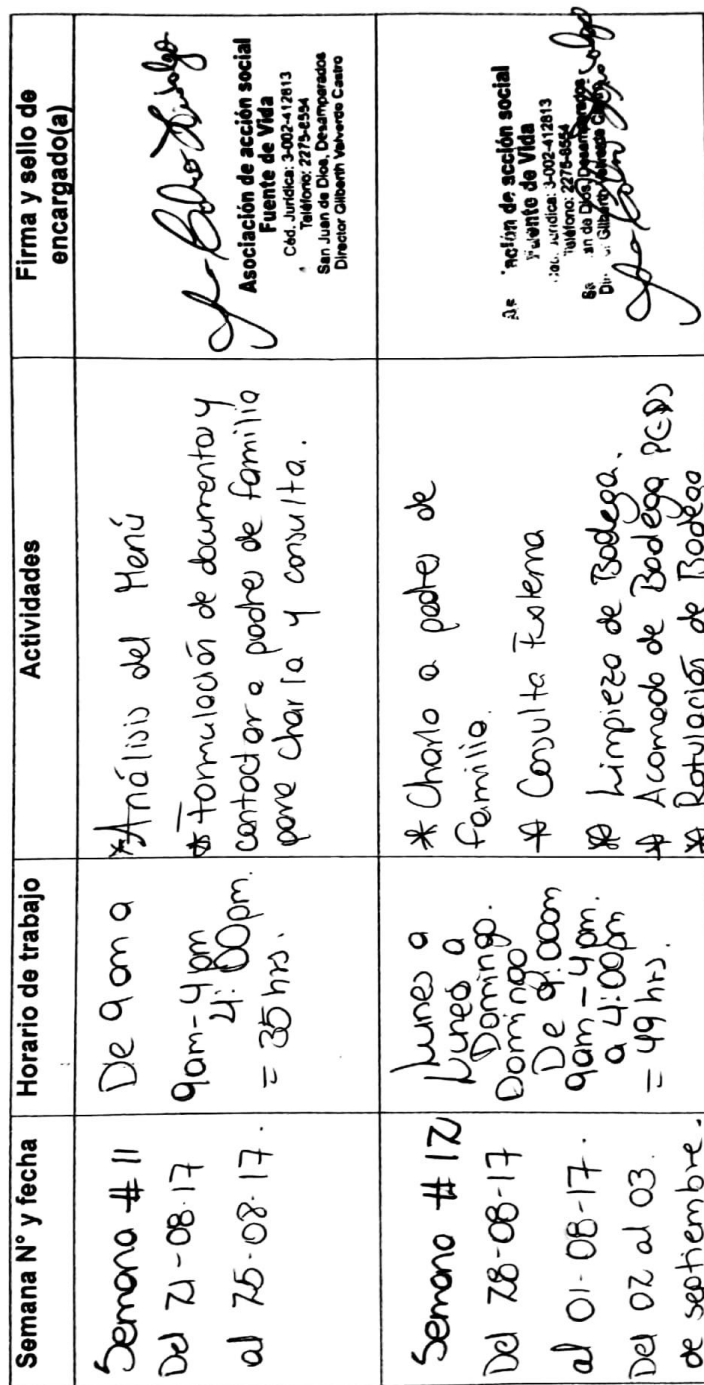 Semana N° y fecha
Horario de trabajo
Actividades
Firma y sello de
encargado(a)
Semana # 11
Del 21-08-17
al 25-08-17.
De 9am a
9am-4pm
4:00pm.
= 35 hrs.
*Análisis del Menú
* Formulación de documentar y
contactar a padres de familia
para charla y consulta.
Asociación de acción social
Fuente de Vida
Céd. Jurídica: 3-002-412613
Teléfono: 2275-8554
San Juan de Dios, Desamparados
Director Gilberth Valverde Castro
Semana # 12
Del 28-08-17
al 01-08-17.
Del 02 al 03.
de septiembre.
Lunes a
Lunes a
Domingo.
Domingo
De 9:00am
9am-4pm.
a 4:00pm
= 49 hrs.
* Charla a padres de
familia.
* Consulta Externa
* Limpieza de Bodega.
* Acomodo de Bodega PCDS
* Rotulación de Bodega
ación de acción social
Fuente de Vida
Jurídica: 3-002-412613
Teléfono: 2275-8554
an de Dios, Desamparados
Gilberth Valverde Castro